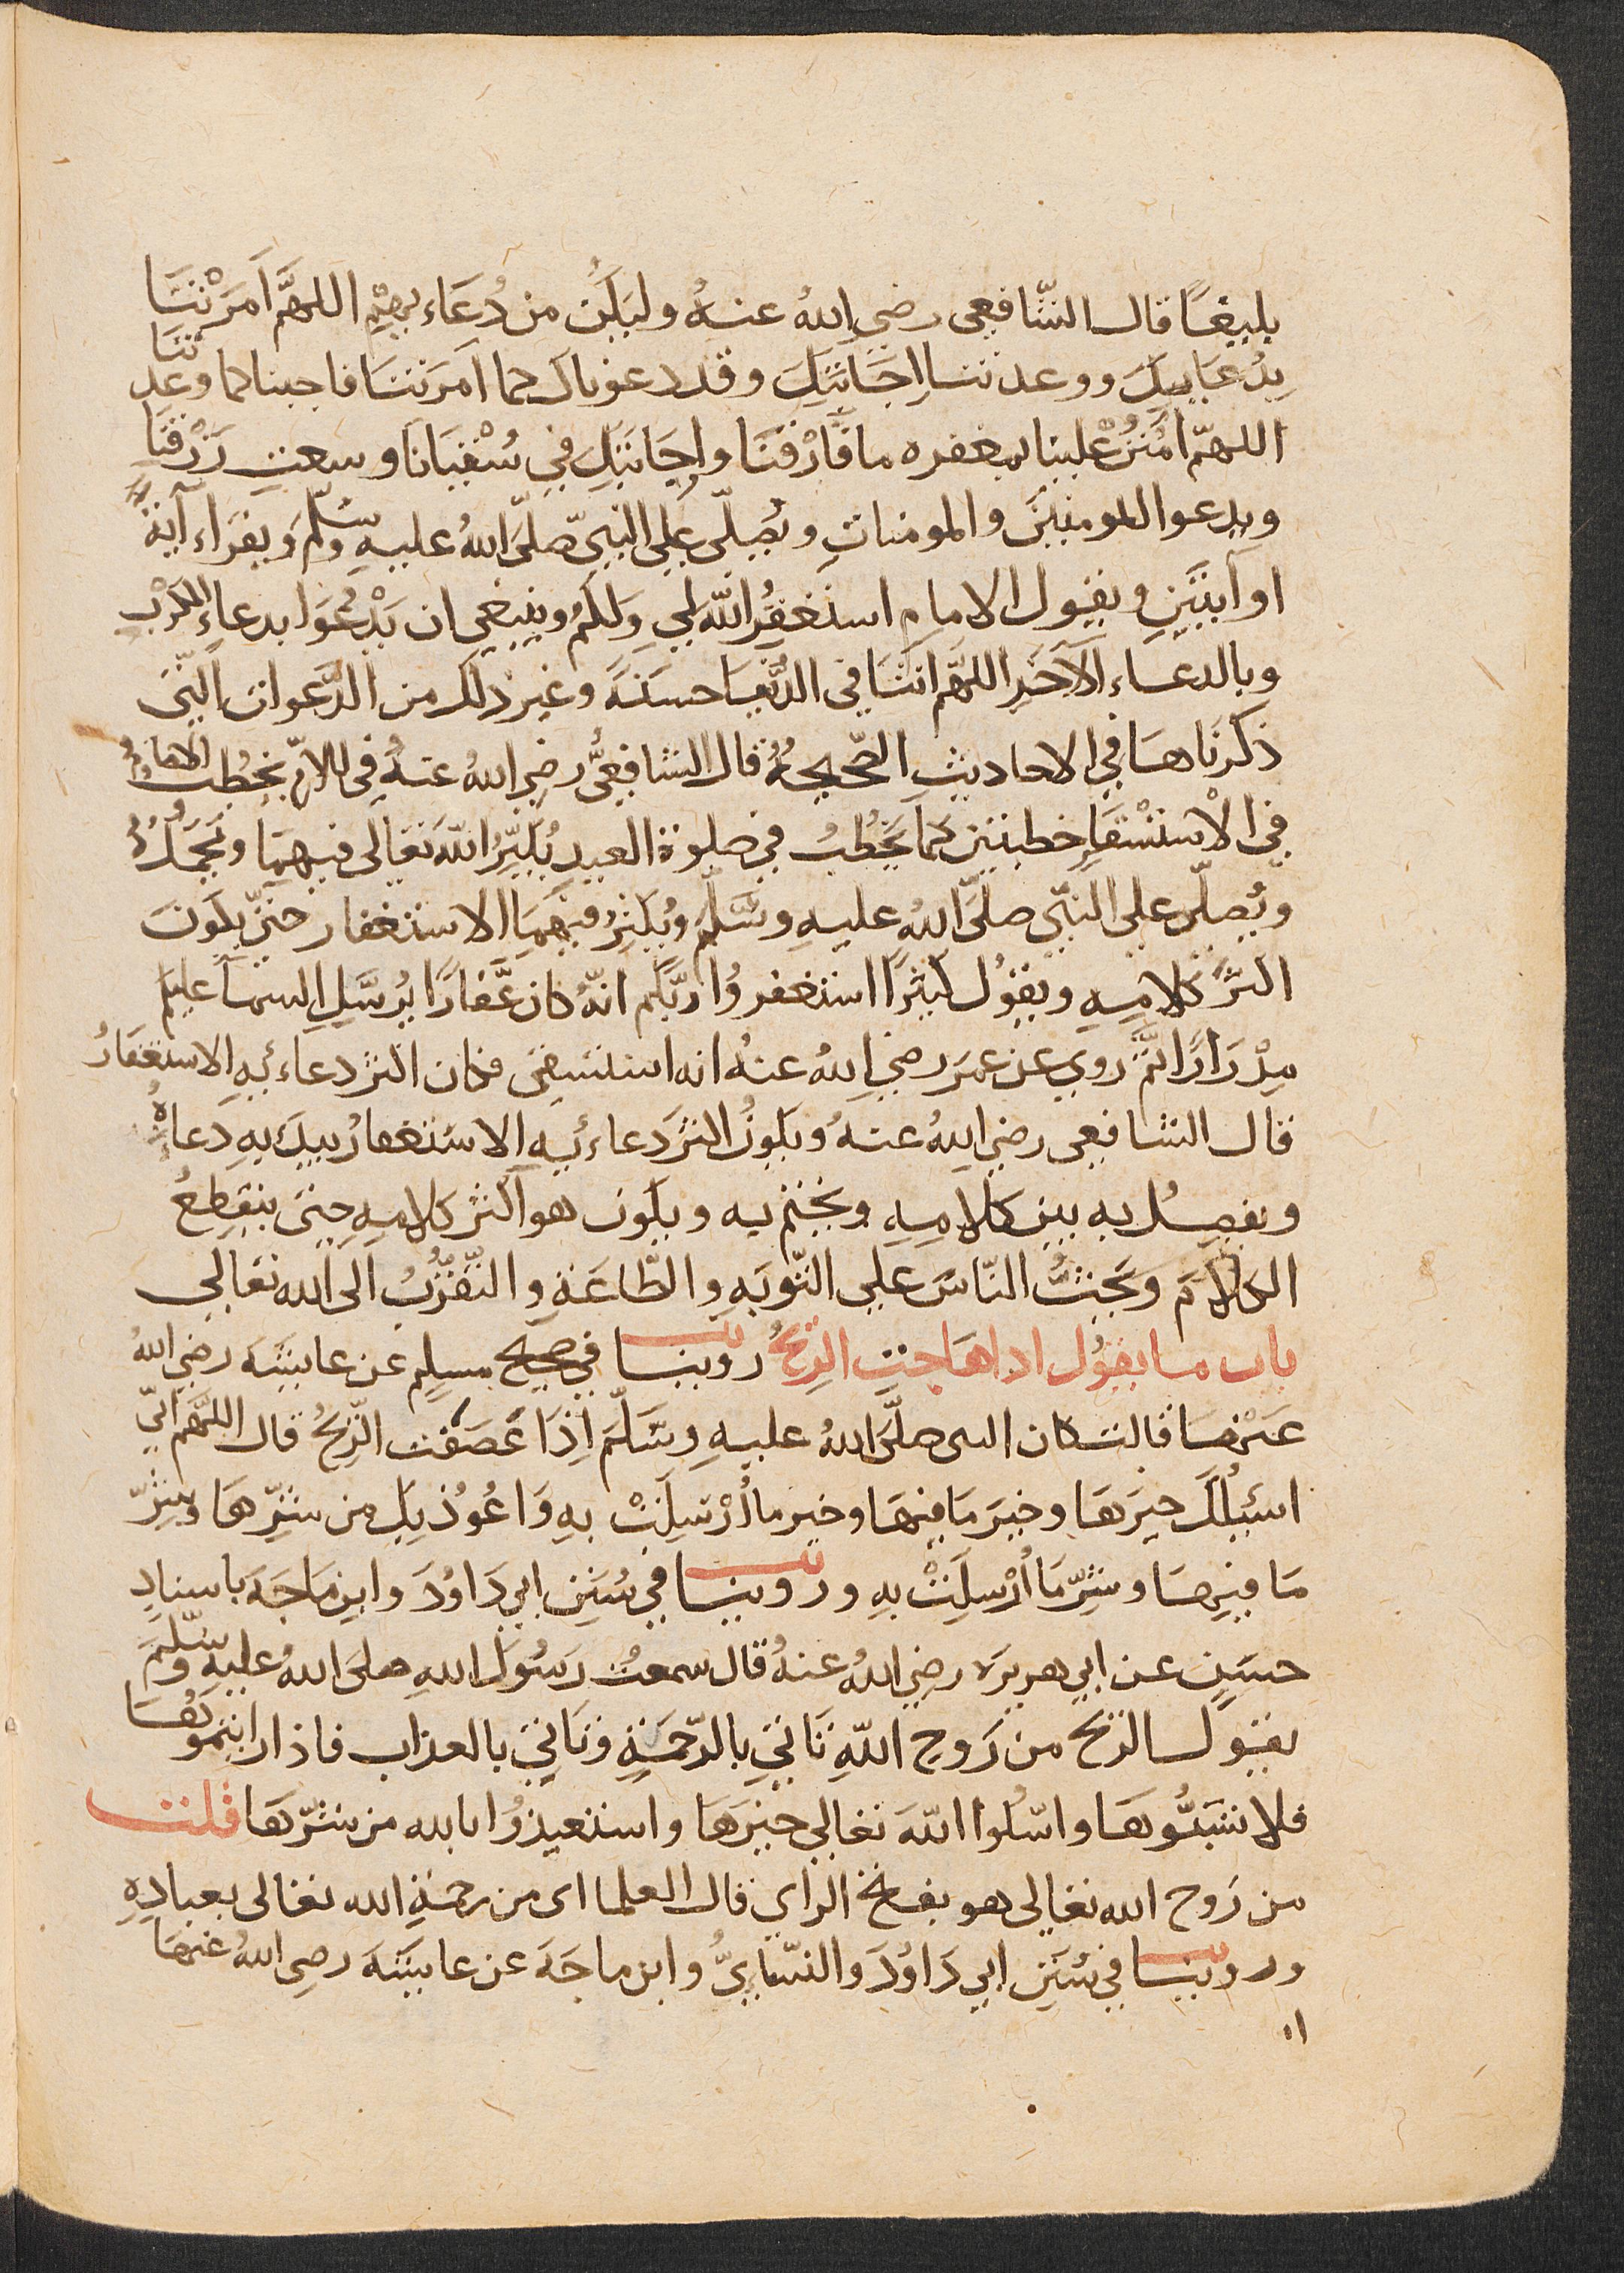 بليغًا قال الشّافعي رضي اللهُ عنهُ وليَكُن من دُعَاءِ بهِمْ اللهمَّ اَمَرْتَنَا
بِدُعَايِكَ ووعدتنا اِجَابَتَكَ وقد دعوناك كما اَمَرتنَا فاجبنا كما وعدتَنَا
اللهمّ امْنُنْ عْلينا بمغفره ما قَارْفنَا واِجَابَتَكِ في سُقْيَانَا وسعتِ رَزْقِنَا
ويدعوا للمومنينَ والمومناتِ ويُصلّي على النبيّ صلَّى اللهُ عليهِ وسَلّمَ ويقرَاء آيَةً
او آيتَينِ ويقول الامام استغفِرُ اللهَ لي وَلكُم وينبغي ان يَدْعُوَا بدعاءِ الكَرْبِ
وبالدعاءِ الآخَرِ اللهُمّ اتنَا في الدُّنْيَا حسنَةً وغير ذلك من الدَّعَوات الّتى
ذكرنَاهَا في الاحاديثِ الصَّحيحةِ قال الشافعيُّ رضي اللهُ عنهُ فى الامّ يخطُبُ الامامُ
في الْاستسْقَاءِ خطبتين كمَا يخْطُبُ في صلوة العيد يُكبِّرُ اللهَ تعالى فيهِمَا ويَحْمَدُهُ
ويُصلّى على النبّي صلّى اللهُ عليهِ وسَلّمَ ويُكثِرُ فيهِمَا الاستغفار حتّى يكونَ
اكثرَ كلامِهِ ويقوُل كثيرًا استغفروُا ربّكم انّهُ كان غَفارًا يُرسَلِ السمآ عليكم
مِدْرَارًا ثمَّ روى عن عمَر رضي اللهُ عنهُ انه استسقى فكان اكثر دعاءِيهِ الاستغفارُ
قال الشافعى رضي اللهُ عنهُ ويكونُ اكثرَ دعاءِيه الاستغفارُ يبدَأ بهِ دَعاءهُ
ويفصِلُ به بين كلامِهِ ويختم به ويكون هو اكثر كلامِهِ حتىَ ينقطِعُ
الكلاَمَ ويَحثُّ النّاسَ على التّوبَهِ والطّاعَةِ والتّقَرُّبُ الى الله تعالى
باب ما يقوُل اذا هَاجتِ الرّيحُ روينا في صحيح مسلِم عن عايشَهَ رضي اللهُ
عَنْهَا قالت كان النبى صلَّى اللهُ عليهِ وسَلّمَ اِذَا عَصَفَت الرّيحُ قال اللهُمّ انّي
اسْئلُكَ خيرَهَا وخيَر مَا فيهَا وخير ما أُرْسِلَتْ بهِ وَاعُوذُ بِكَ من شرِّهَا وشرّ
مَا فيهَا وشرِّ مَا أُرْسلَتْ بهِ وروينا في سُنَنِ ابي دَاوُدَ وابن مَاجَهَ باسنادٍ
حسَنٍ عن ابي هريرَه رضي اللهُ عنهُ قال سمعتُ رَسُولَ اللهِ صلى اللهُ عليهِ وسَلّمَ
يقوُل الريح من رَوحِ اللّهِ تَاتي بالرّحمةِ وتَاتي بالعذاب فاذا رايتمُوهَا
فلا تسُبُّوهَا واسْئلوا اللّهَ تعالى خيرَهَا واستعيذوُا بالله من شرّهَا قلت
من رَوح الله تعالى هو بفتح الراي قال العلما اى من رحمَةِ الله تعالى بعبادِهِ
وروينا في سُنَنِ ابي دَاوُدَ والنسّايِيُّ وابن ماجَهَ عن عايشَهَ رضي اللهُ عَنهَا